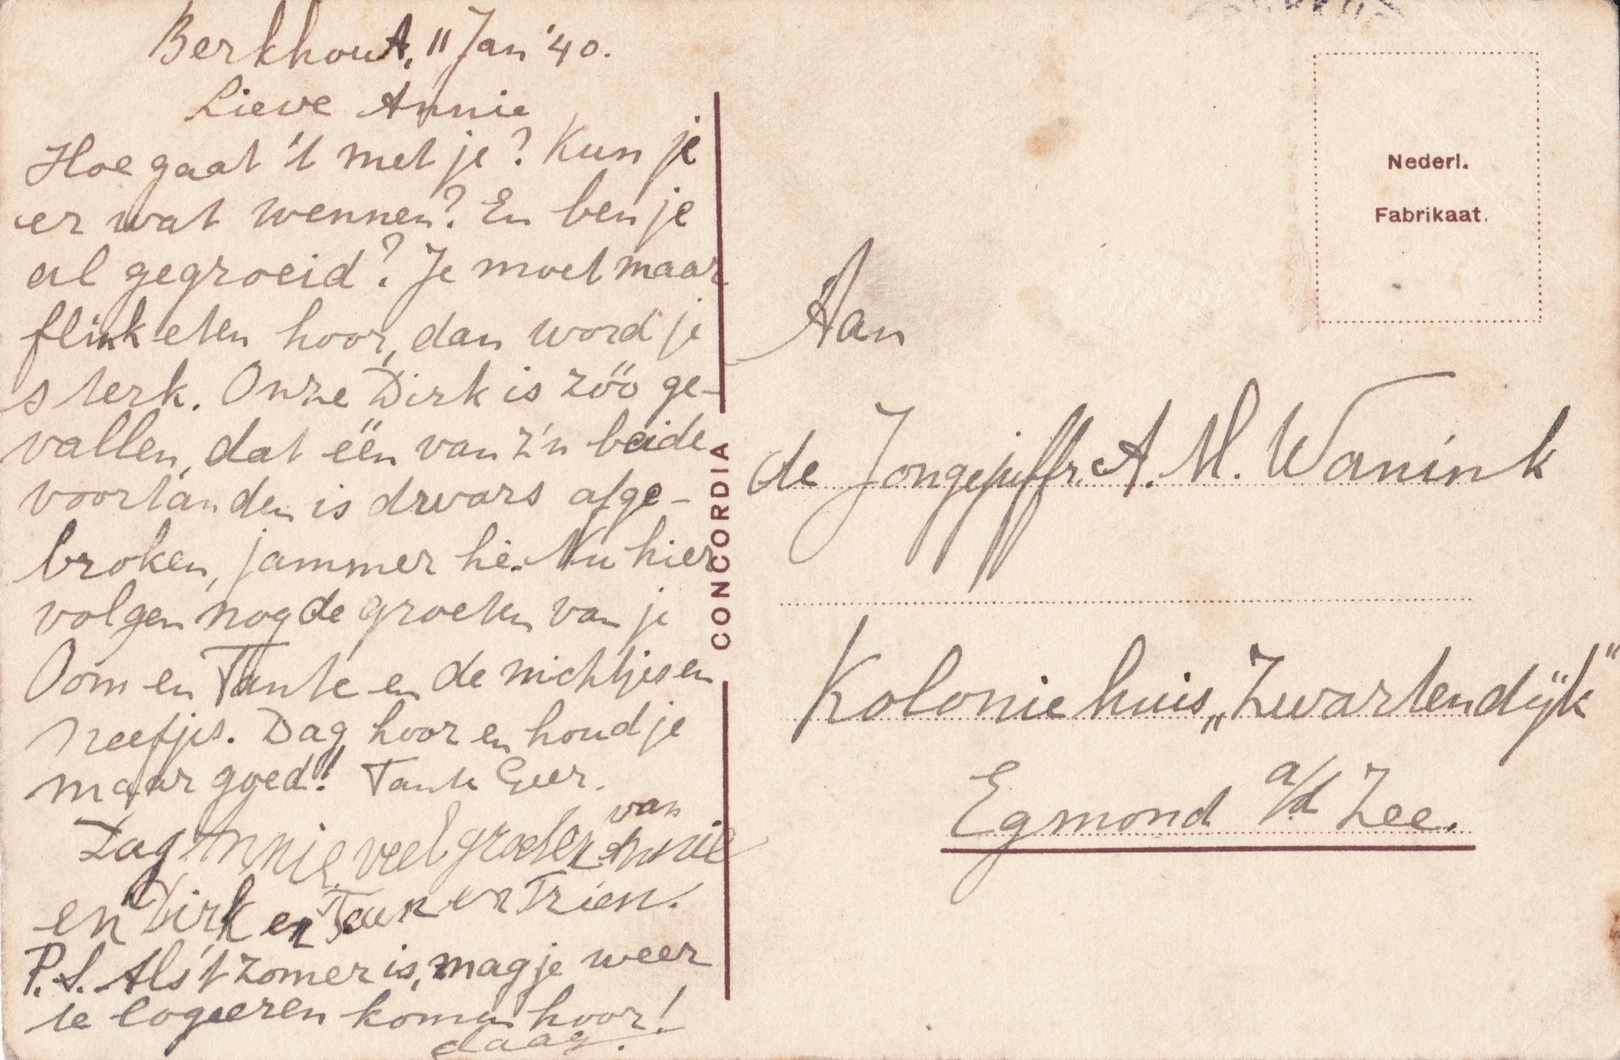 Berkhout, 11 Jan '40.
Lieve Annie
Hoe gaat 't met je? Kun je
er wat wennen? En ben je
al gegroeid? Je moet maar
flink eten hoor, dan word je
sterk. Onze Dirk is zóó ge-
vallen, dat één van z'n beide
voortanden is dwars afge-
broken, jammer hè. Nu hier
volgen nog de groeten van je
Oom en Tante en de nichtjes en
neefjes. Dag hoor en houd je
maar goed! Tante Geer.
Dag Annie veel groeten van Annie
en Dirk en Teun en Trien.
P.S. Als 't zomer is, mag je weer
te logeeren komen hoor!
daag.
CONCORDIA
Nederl.
Fabrikaat.
Aan
de Jongejuffr. A. M. Wanink
Koloniehuis „Zwartendijk"
Egmond a/d Zee.